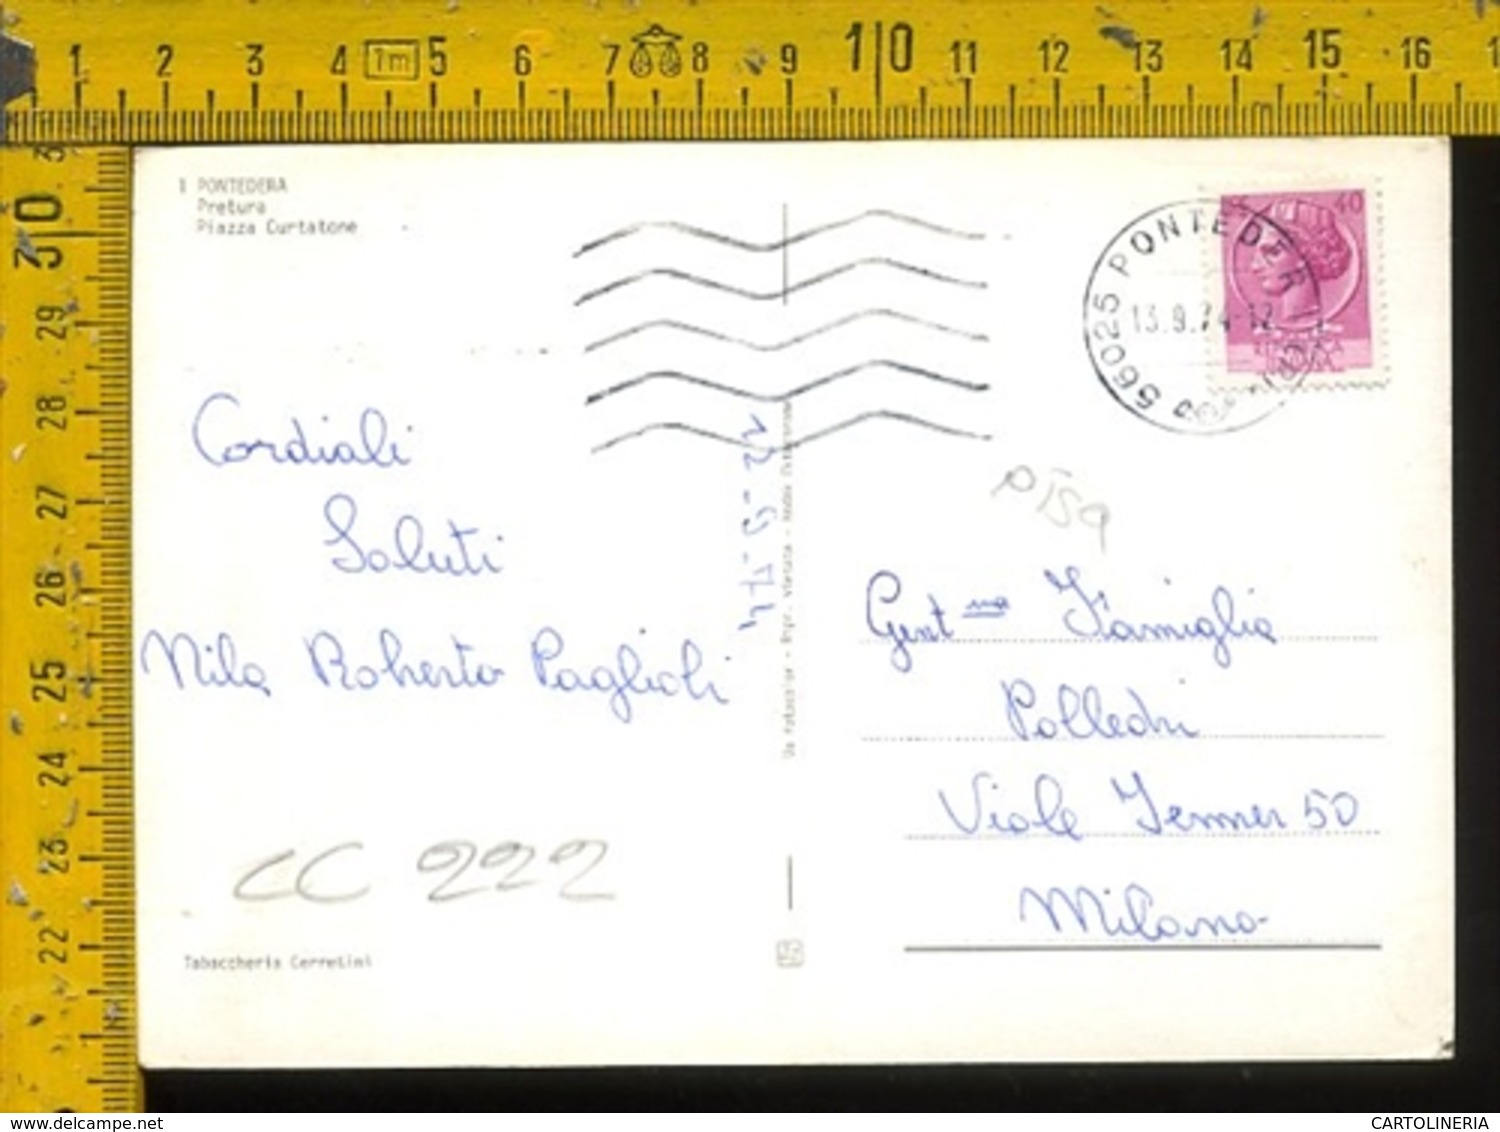 1 2 3 4 1m 5 6 7 8 9 10 11 12 13 14 15 16
30 29 28 27 26 25 24 23 22
1 PONTEDERA
Pretura
Piazza Curtatone
56025 PONTEDERA
13.9.74-12
40
Cordiali
Saluti
Nila Roberto Paglioli
12-9-74
pisa
Gent ma Famiglia
Polledri
Viale Jenner 50
Milano
CC 222
Tabaccheria Cerretini
www.delcampe.net
CARTOLINERIA